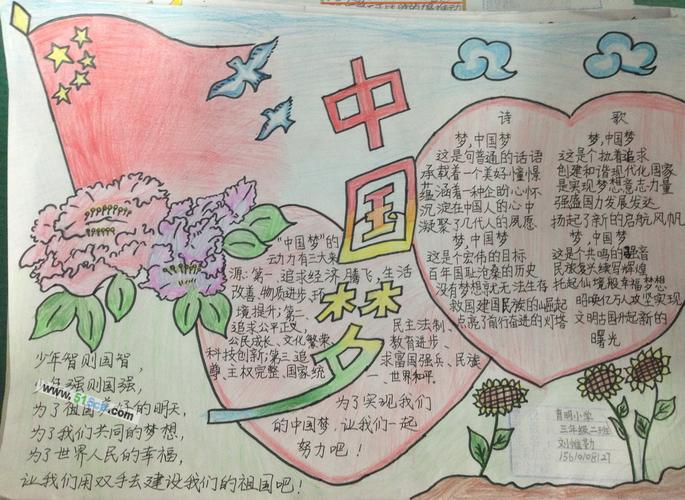 中
国
梦
诗 歌
梦,中国梦
这是句普通的话语
承载着一个美好憧憬
蕴涵着一种企的心怀
沉淀在中国人的心中
凝聚了几代人的夙愿
梦,中国梦
这是个宏伟的目标
百年国耻沧桑的历史
没有梦想就无法生存
救国建国民族的崛起
点亮了前行奋进的灯塔
梦,中国梦
这是个执着追求
创建和谐现代化国家
是实现梦想意志力量
强盛国力发展发达
扬起了新的启航风帆
梦,中国梦
这是个共鸣的强音
民族复兴续写辉煌
托起仙境般幸福梦想
昭唤亿万人攻坚实现
文明古国升起新的
曙光
"中国梦"的
动力有三大来
源:第一.追求经济腾飞,生活
改善.物质进步,环
境提升;第二.
追求公平正义, 民主法制,
公民成长、文化繁荣、教育进步、
科技创新;第三.追求富国强兵、民族
尊、主权完整、国家统一、世界和平.
为了实现我们
的中国梦,让我们一起
努力吧!
少年智则国智,
少年强则国强,
为了祖国 的明天,
为了我们共同的梦想,
为了世界人民的幸福,
让我们用双手去建设我们的祖国吧!
育明小学
三年级二班
刘惟勤
15610108127